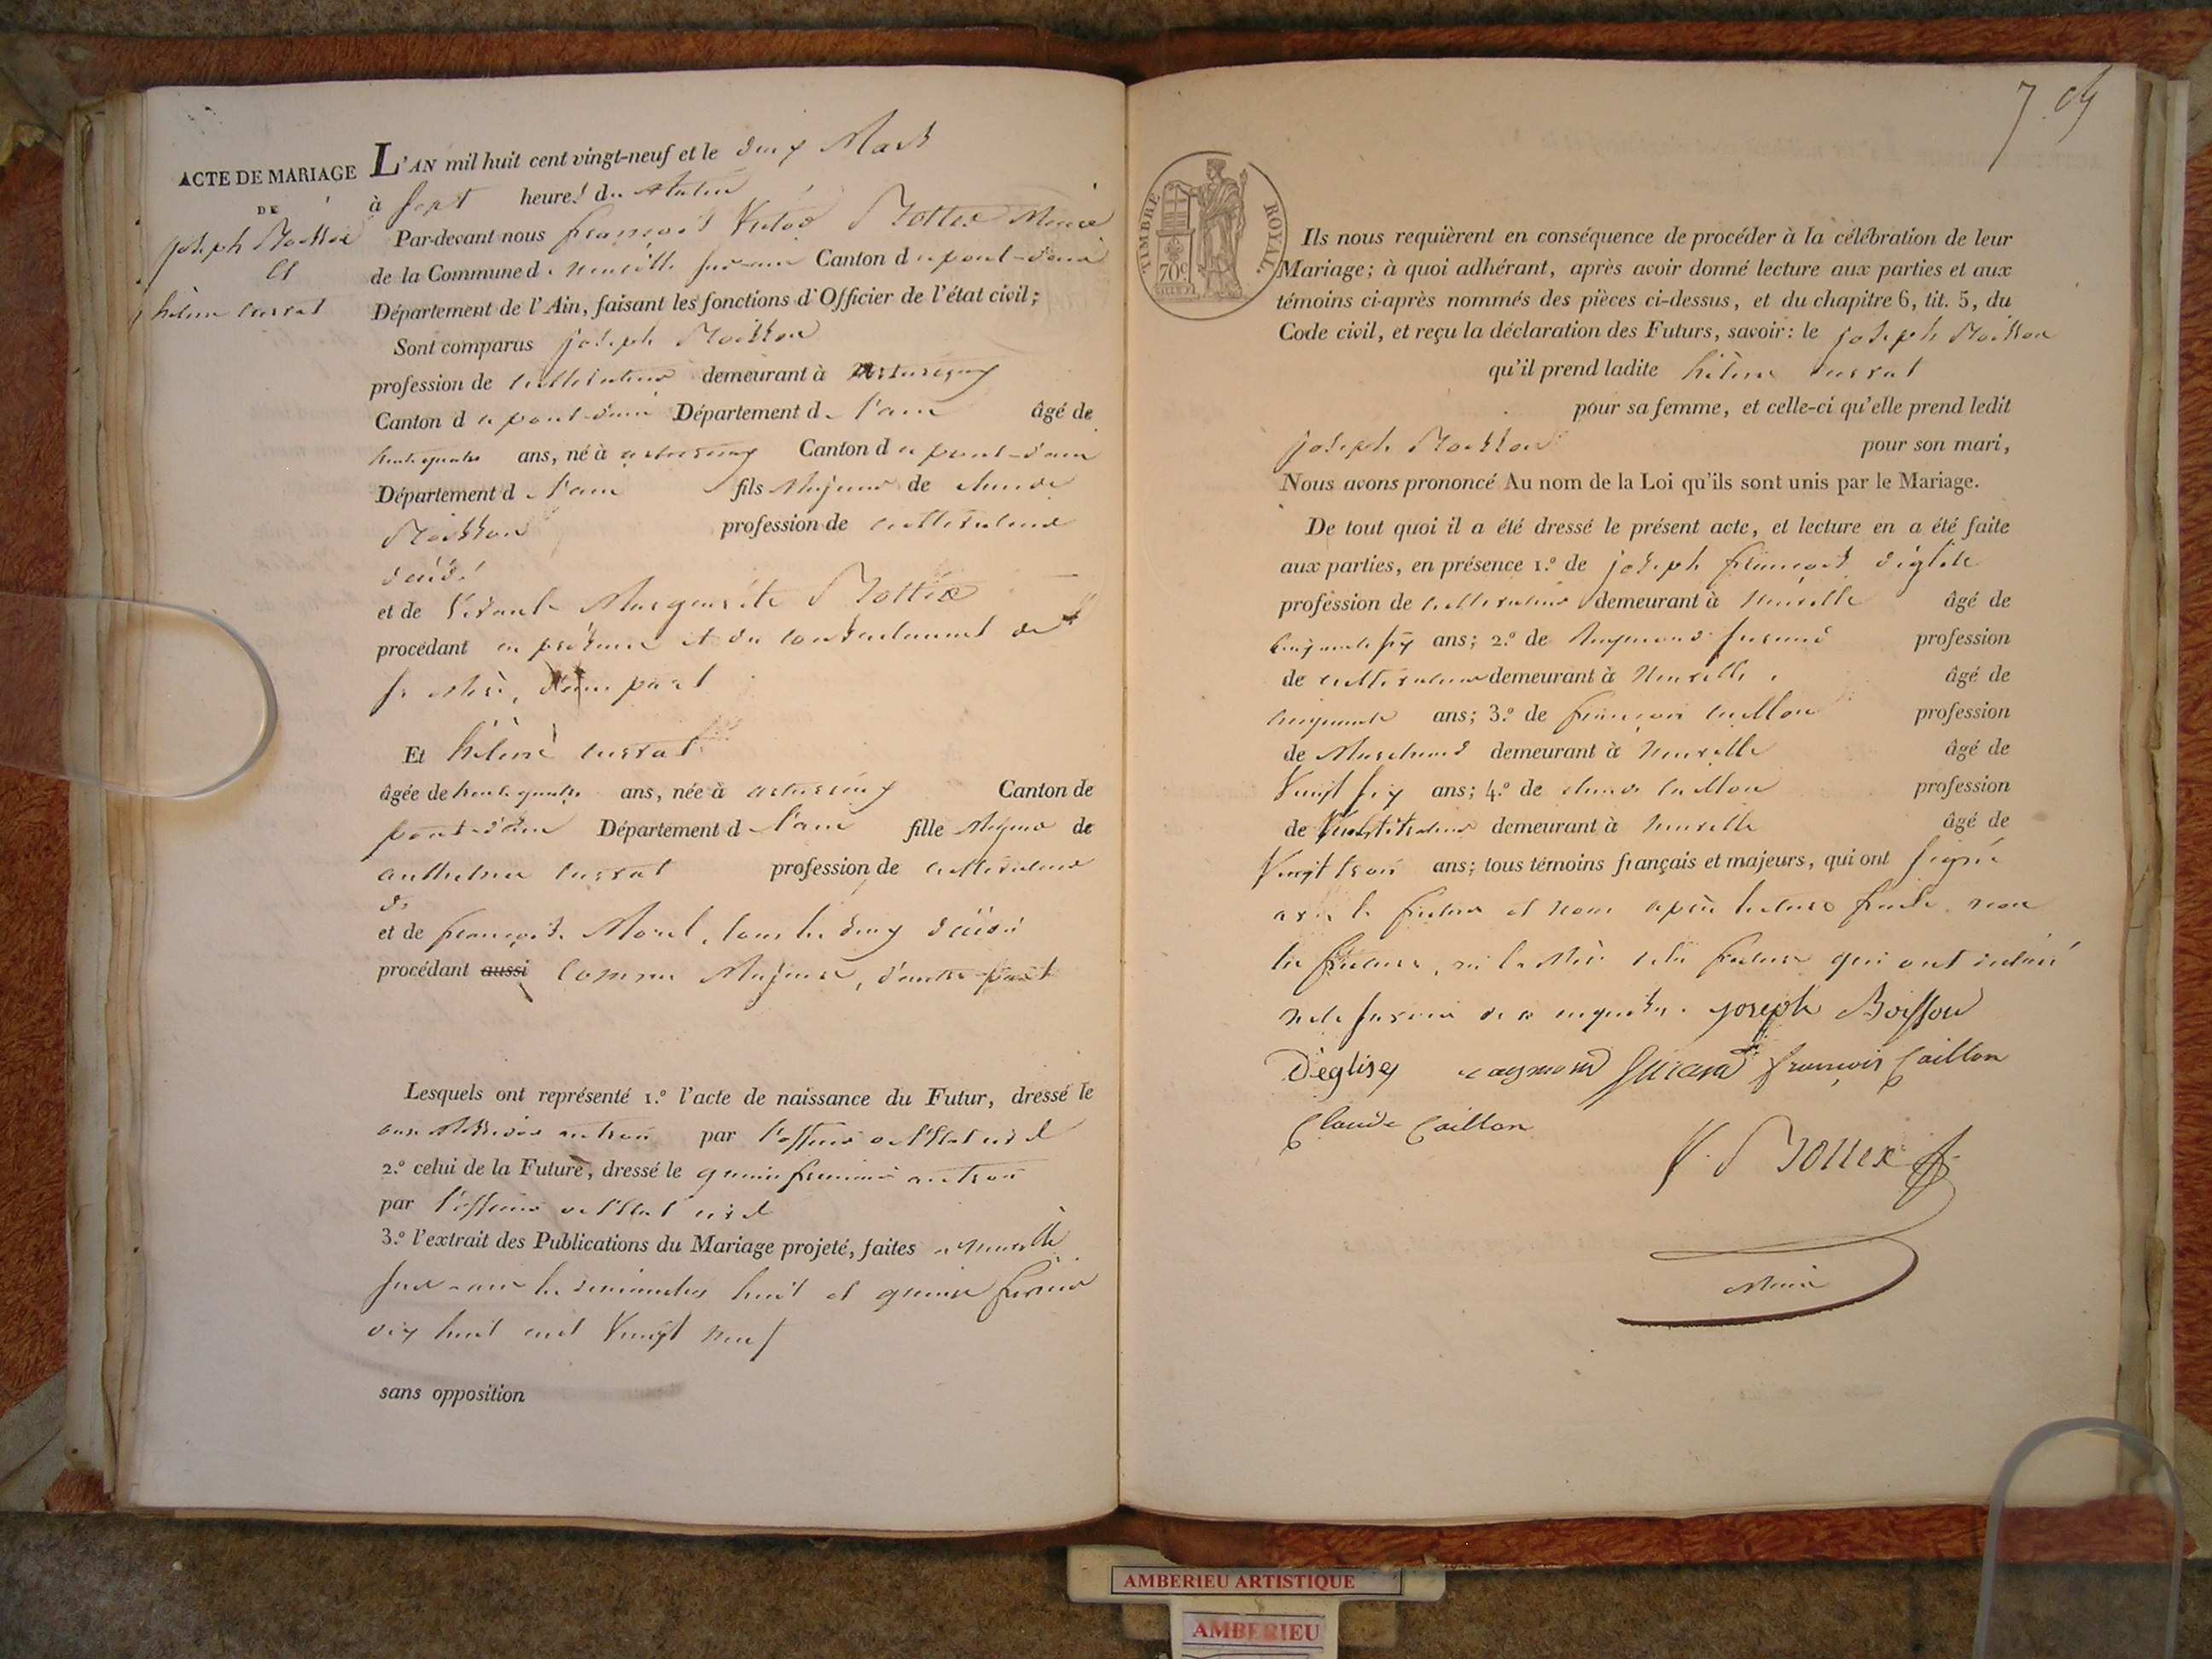 ACTE DE MARIAGE
DE
joseph Boisson
Et
hélène curvat
L'AN mil huit cent vingt-neuf et le deux Mars
à sept heures du Matin
Par-devant nous françois Victor Bottex Maire
de la Commune de neuville sur-ain Canton de pont-d'ain
Département de l'Ain, faisant les fonctions d'Officier de l'état civil;
Sont comparus joseph Boisson
profession de cultivateur demeurant à
Canton de pont-d'ain Département de l'ain âgé de
trente quatre ans, né à Canton de pont-d'ain
Département de l'ain fils Majeur de claude
Boisson profession de cultivateur
décédé
et de vivante Marguerite Bottex
procédant en présence et du consentement de
sa Mère, d'une part
Et hélène curvat
âgée de trente quatre ans, née à Canton de
pont-d'ain Département de l'ain fille Majeure de
anthelme curvat profession de cultivateur
et de françoise Morel, tous les deux décédés
procédant aussi comme Majeure, d'autre part
Lesquels ont représenté 1.º l'acte de naissance du Futur, dressé le
onze Messidor an trois par l'officier de l'état civil
2.º celui de la Future, dressé le quinze frimaire an trois
par l'officier de l'état civil
3.º l'extrait des Publications du Mariage projeté, faites a neuville
sur-ain les dimanches huit et quinze février
dix huit cent vingt neuf
sans opposition
7
TIMBRE ROYAL
70c
Ils nous requièrent en conséquence de procéder à la célébration de leur
Mariage; à quoi adhérant, après avoir donné lecture aux parties et aux
témoins ci-après nommés des pièces ci-dessus, et du chapitre 6, tit. 5, du
Code civil, et reçu la déclaration des Futurs, savoir: le joseph Boisson
qu'il prend ladite hélène curvat
pour sa femme, et celle-ci qu'elle prend ledit
joseph Boisson pour son mari,
Nous avons prononcé Au nom de la Loi qu'ils sont unis par le Mariage.
De tout quoi il a été dressé le présent acte, et lecture en a été faite
aux parties, en présence 1.º de joseph françois déglise
profession de cultivateur demeurant à neuville âgé de
cinquante six ans; 2.º de Raymond profession
de cultivateur demeurant à Neuville âgé de
cinquante ans; 3.º de françois caillon profession
de Marchand demeurant à neuville âgé de
Vingt six ans; 4.º de claude caillon profession
de demeurant à neuville âgé de
Vingt trois ans; tous témoins français et majeurs, qui ont signé
avec le futur et nous après lecture faite, non
la future, ni la Mère du futur qui ont déclaré
ne le savoir de ce enquises. joseph Boisson
Déglise raymond françois Caillon
Claude Caillon
V. Bottex
Maire
AMBERIEU ARTISTIQUE
AMBERIEU